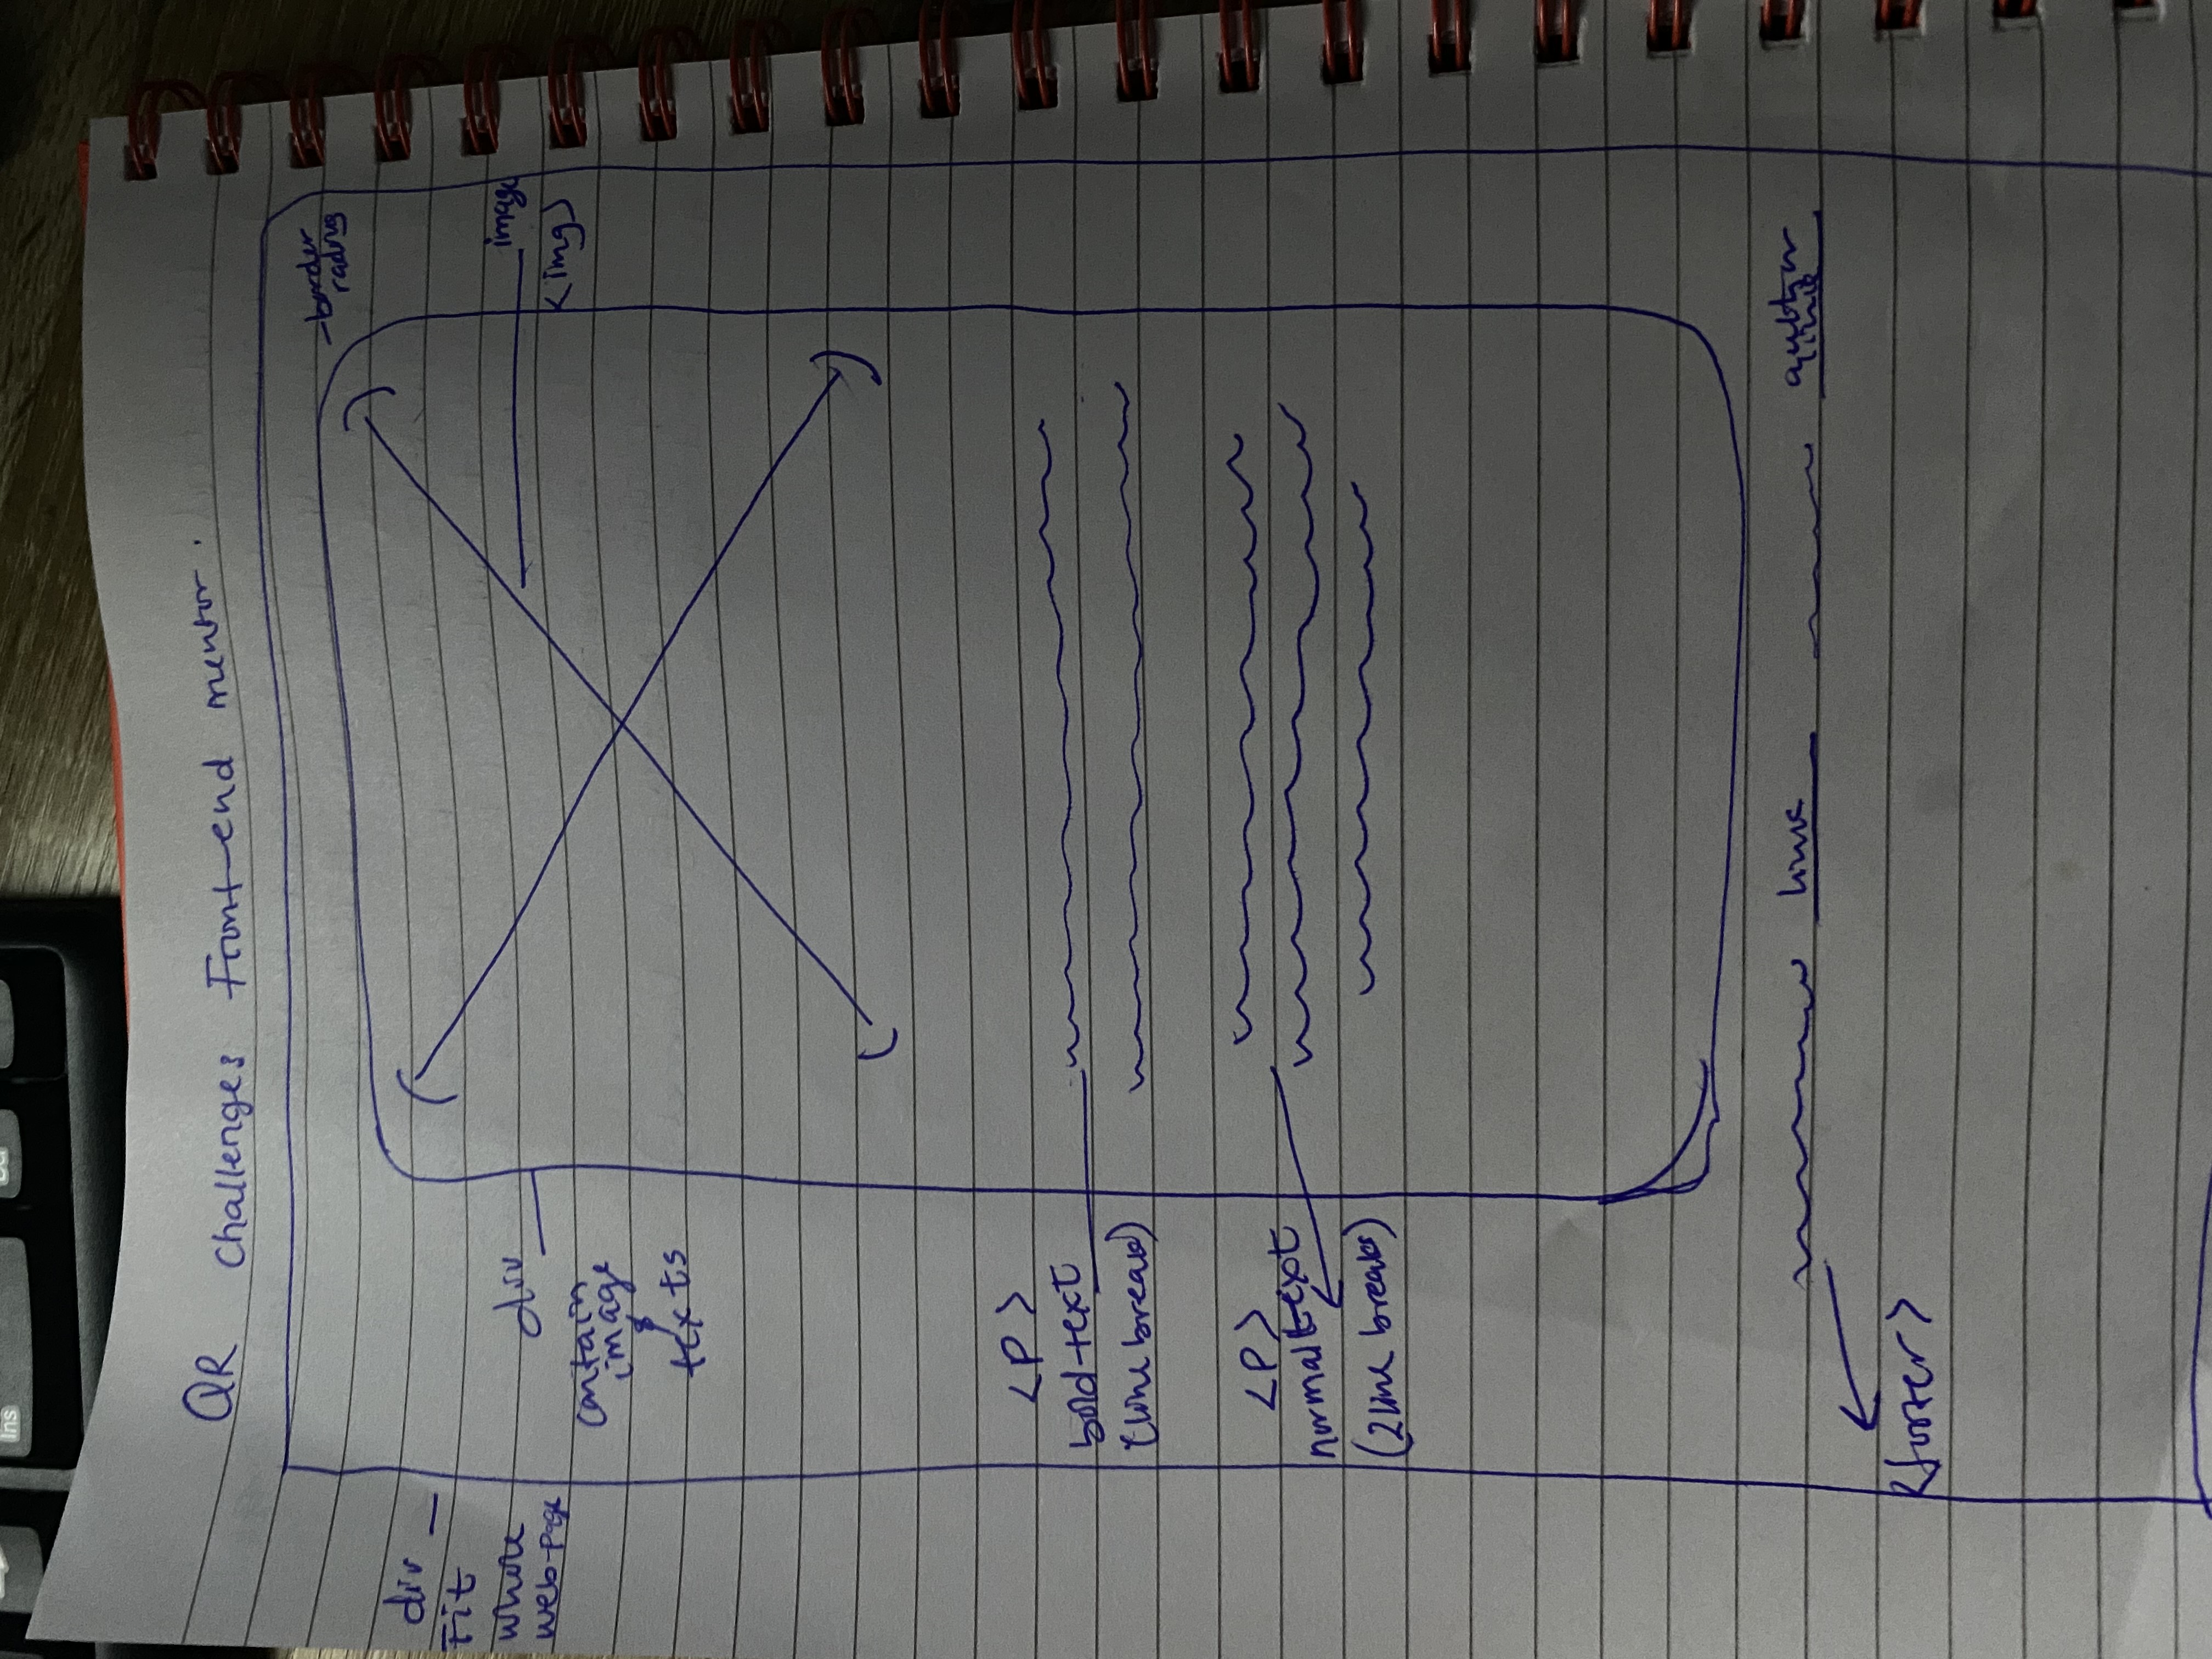 Ins
QR Challenges Front-end mentor.
- border
radius
div
Fit
whole
web-page
div
contain
image
&
texts
image
<img>
<P>
bold-text
(line break)
<P>
normal text
(2 line breaks)
link
author
link
<footer>